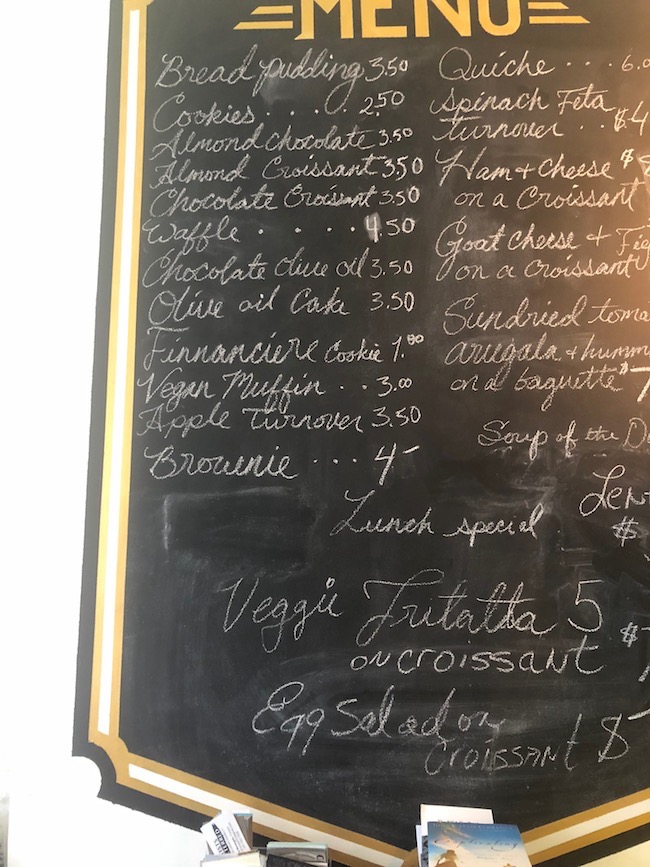 MENU
Bread pudding 3.50
Cookies . . . . . 2.50
Almond chocolate 3.50
Almond Croissant 3.50
Chocolate Croissant 3.50
Waffle . . . . . 4.50
Chocolate olive oil 3.50
Olive oil Cake 3.50
Finnanciere Cookie 1.00
Vegan Muffin . . 3.00
Apple turnover 3.50
Brownie . . . 4-
Quiche . . . 6.0
Spinach Feta
turnover . . $4
Ham + cheese $
on a Croissant
Goat cheese +
on a croissant
Sundried
arugala +
on a baguette $7
Soup of the
Lunch special
$
Veggie Fritatta 5
on croissant
$
Egg Salad on
croissant $